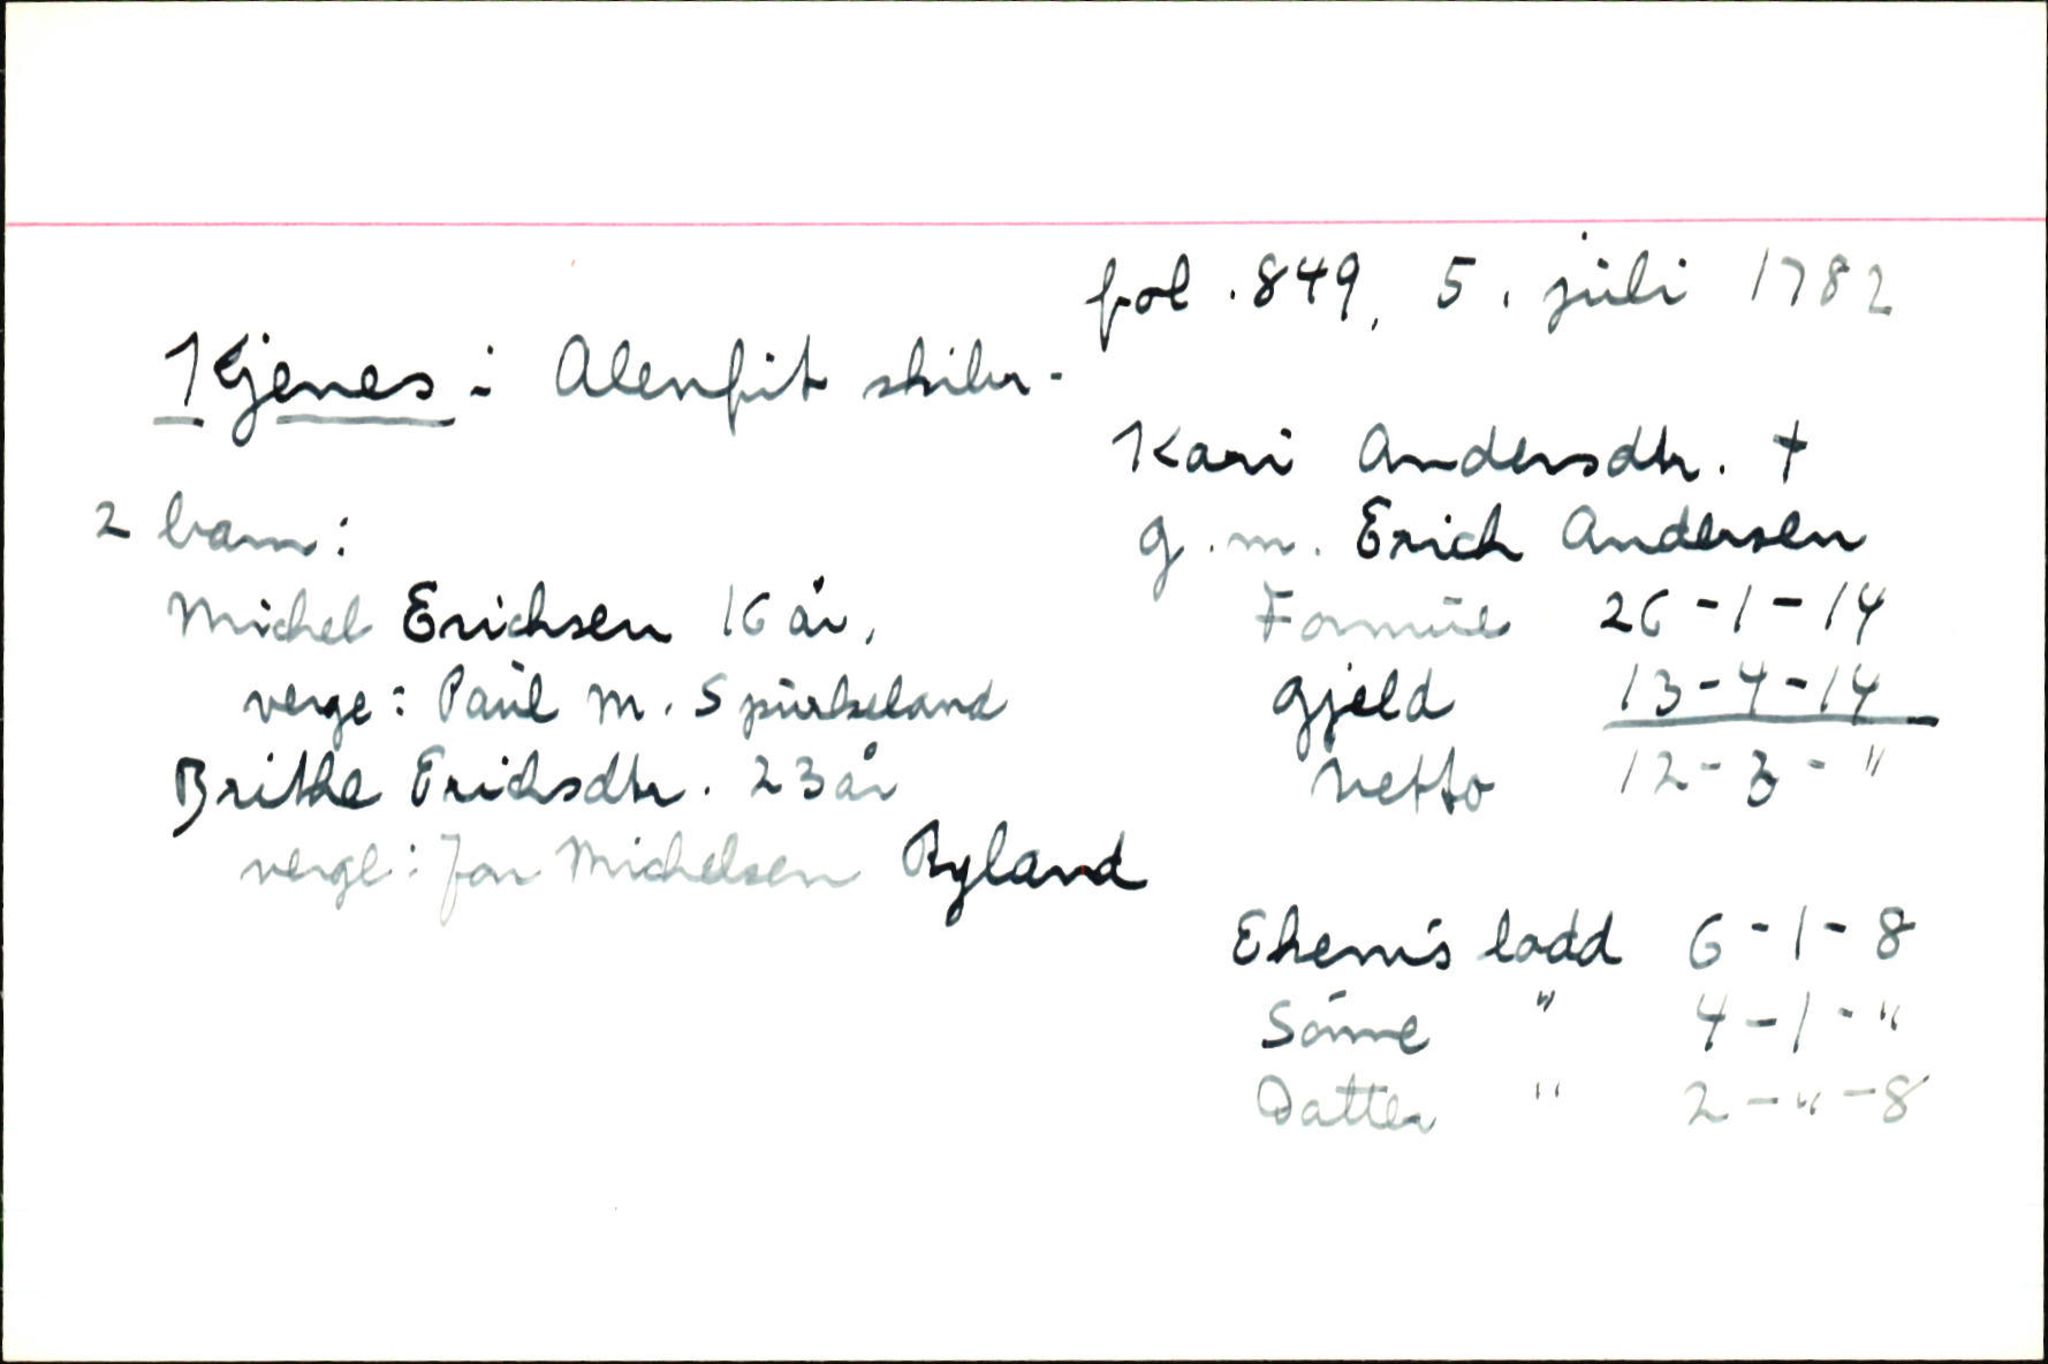 fol. 849, 5. juli 1782
Kjenes i Alenfit skibr.
Kari Andersdtr. †
g.m. Erich Andersen
Formue 26-1-14
Gjeld 13-4-14
Netto 12-3-"
2 barn:
Michel Erichsen 16 år,
verge: Paul M. Spurkeland
Brithe Erichsdtr. 23 år
verge: Jon Michelsen Ryland
Ekem's lodd 6-1-8
Sønne " 4-1-"
Datter " 2-"-8